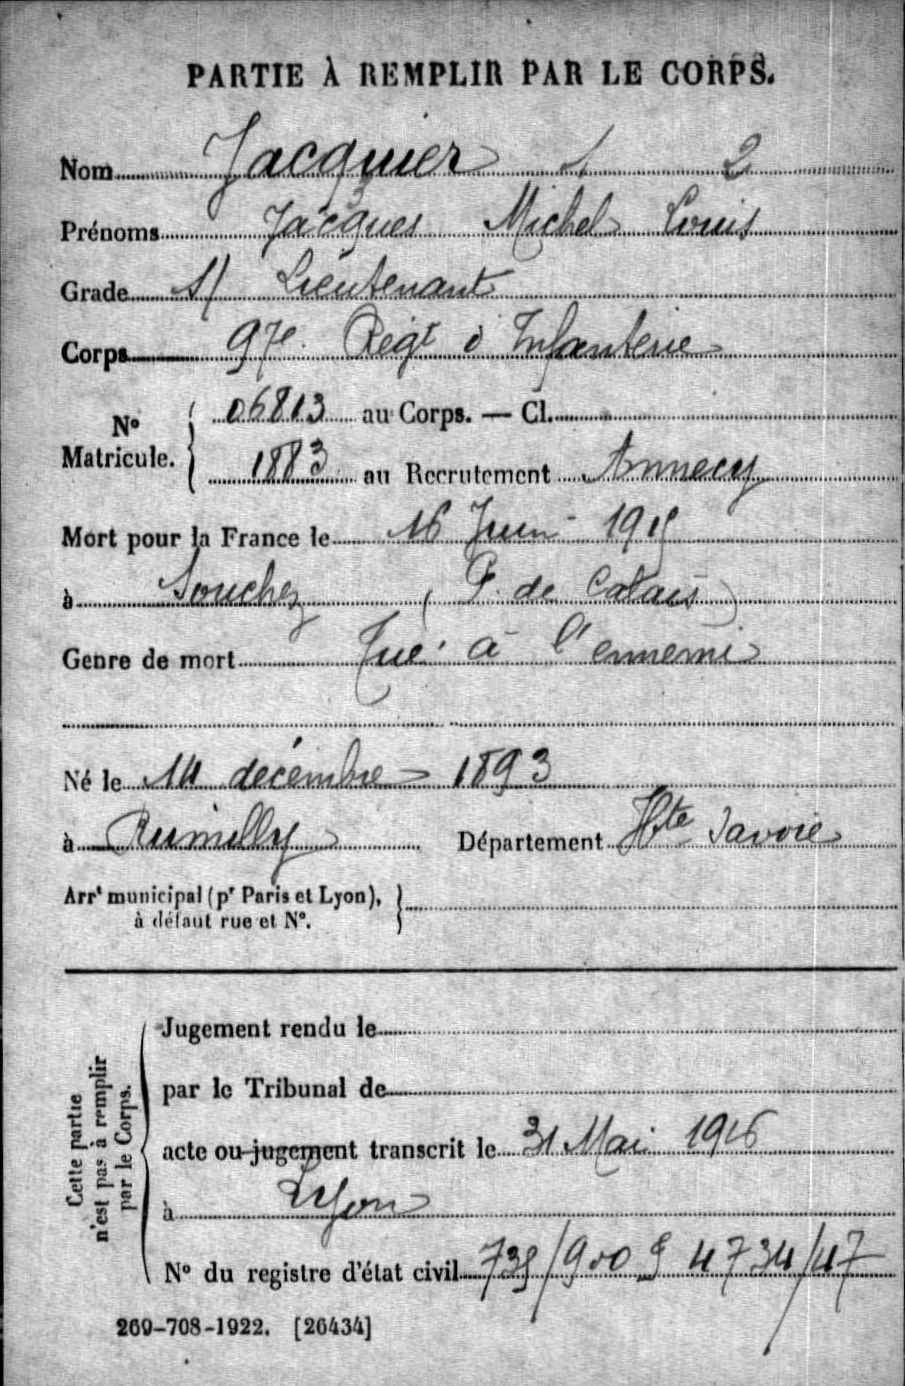 PARTIE À REMPLIR PAR LE CORPS.
Nom Jacquier 1 2
Prénoms Jacques Michel Louis
Grade S/ Lieutenant
Corps 97e Régt d'Infanterie
No Matricule. { 06813 au Corps. — Cl.
1883 au Recrutement Annecy
Mort pour la France le 16 Juin 1915
à Souchez (P. de Calais)
Genre de mort Tué à l'ennemi
Né le 14 décembre 1893
à Rumilly Département Hte Savoie
Arrt municipal (pr Paris et Lyon),
à défaut rue et No.
Cette partie
n'est pas à remplir
par le Corps.
Jugement rendu le
par le Tribunal de
acte ou jugement transcrit le 31 Mai 1916
à Lyon
No du registre d'état civil 4734/47
269-708-1922. [26434]